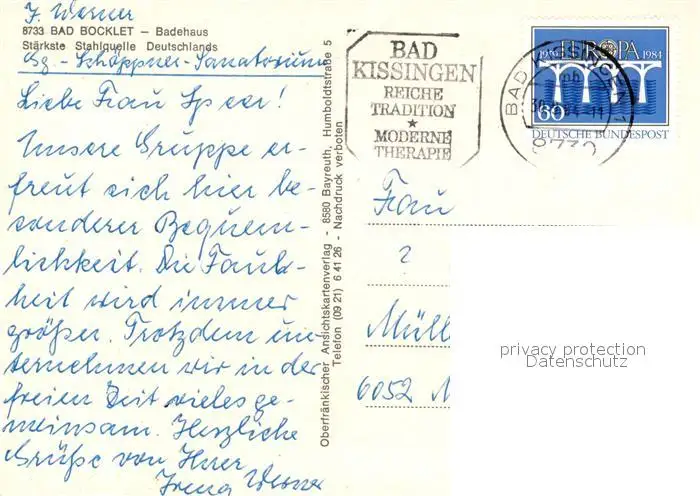 I. Werner
8733 BAD BOCKLET – Badehaus
Stärkste Stahlquelle Deutschlands
Gg.-Schöppner-Sanatorium
Liebe Frau Speer!
Unsere Gruppe er-
freut sich hier be-
sonderer Bequem-
lichkeit. Die Faul-
heit wird immer
größer. Trotzdem un-
ternehmen wir in der
freien Zeit vieles ge-
meinsam. Herzliche
Grüße von Ihrer
Irena Werner
Oberfränkischer Ansichtskartenverlag - 8580 Bayreuth, Humboldtstraße 5
Telefon (09 21) 6 41 26 - Nachdruck verboten
BAD
KISSINGEN
REICHE
TRADITION
★
MODERNE
THERAPIE
BAD KISSINGEN 1
pb
84-11
8730
1959 EUROPA 1984
60
DEUTSCHE BUNDESPOST
Frau
Müll
6052 M
privacy protection
Datenschutz